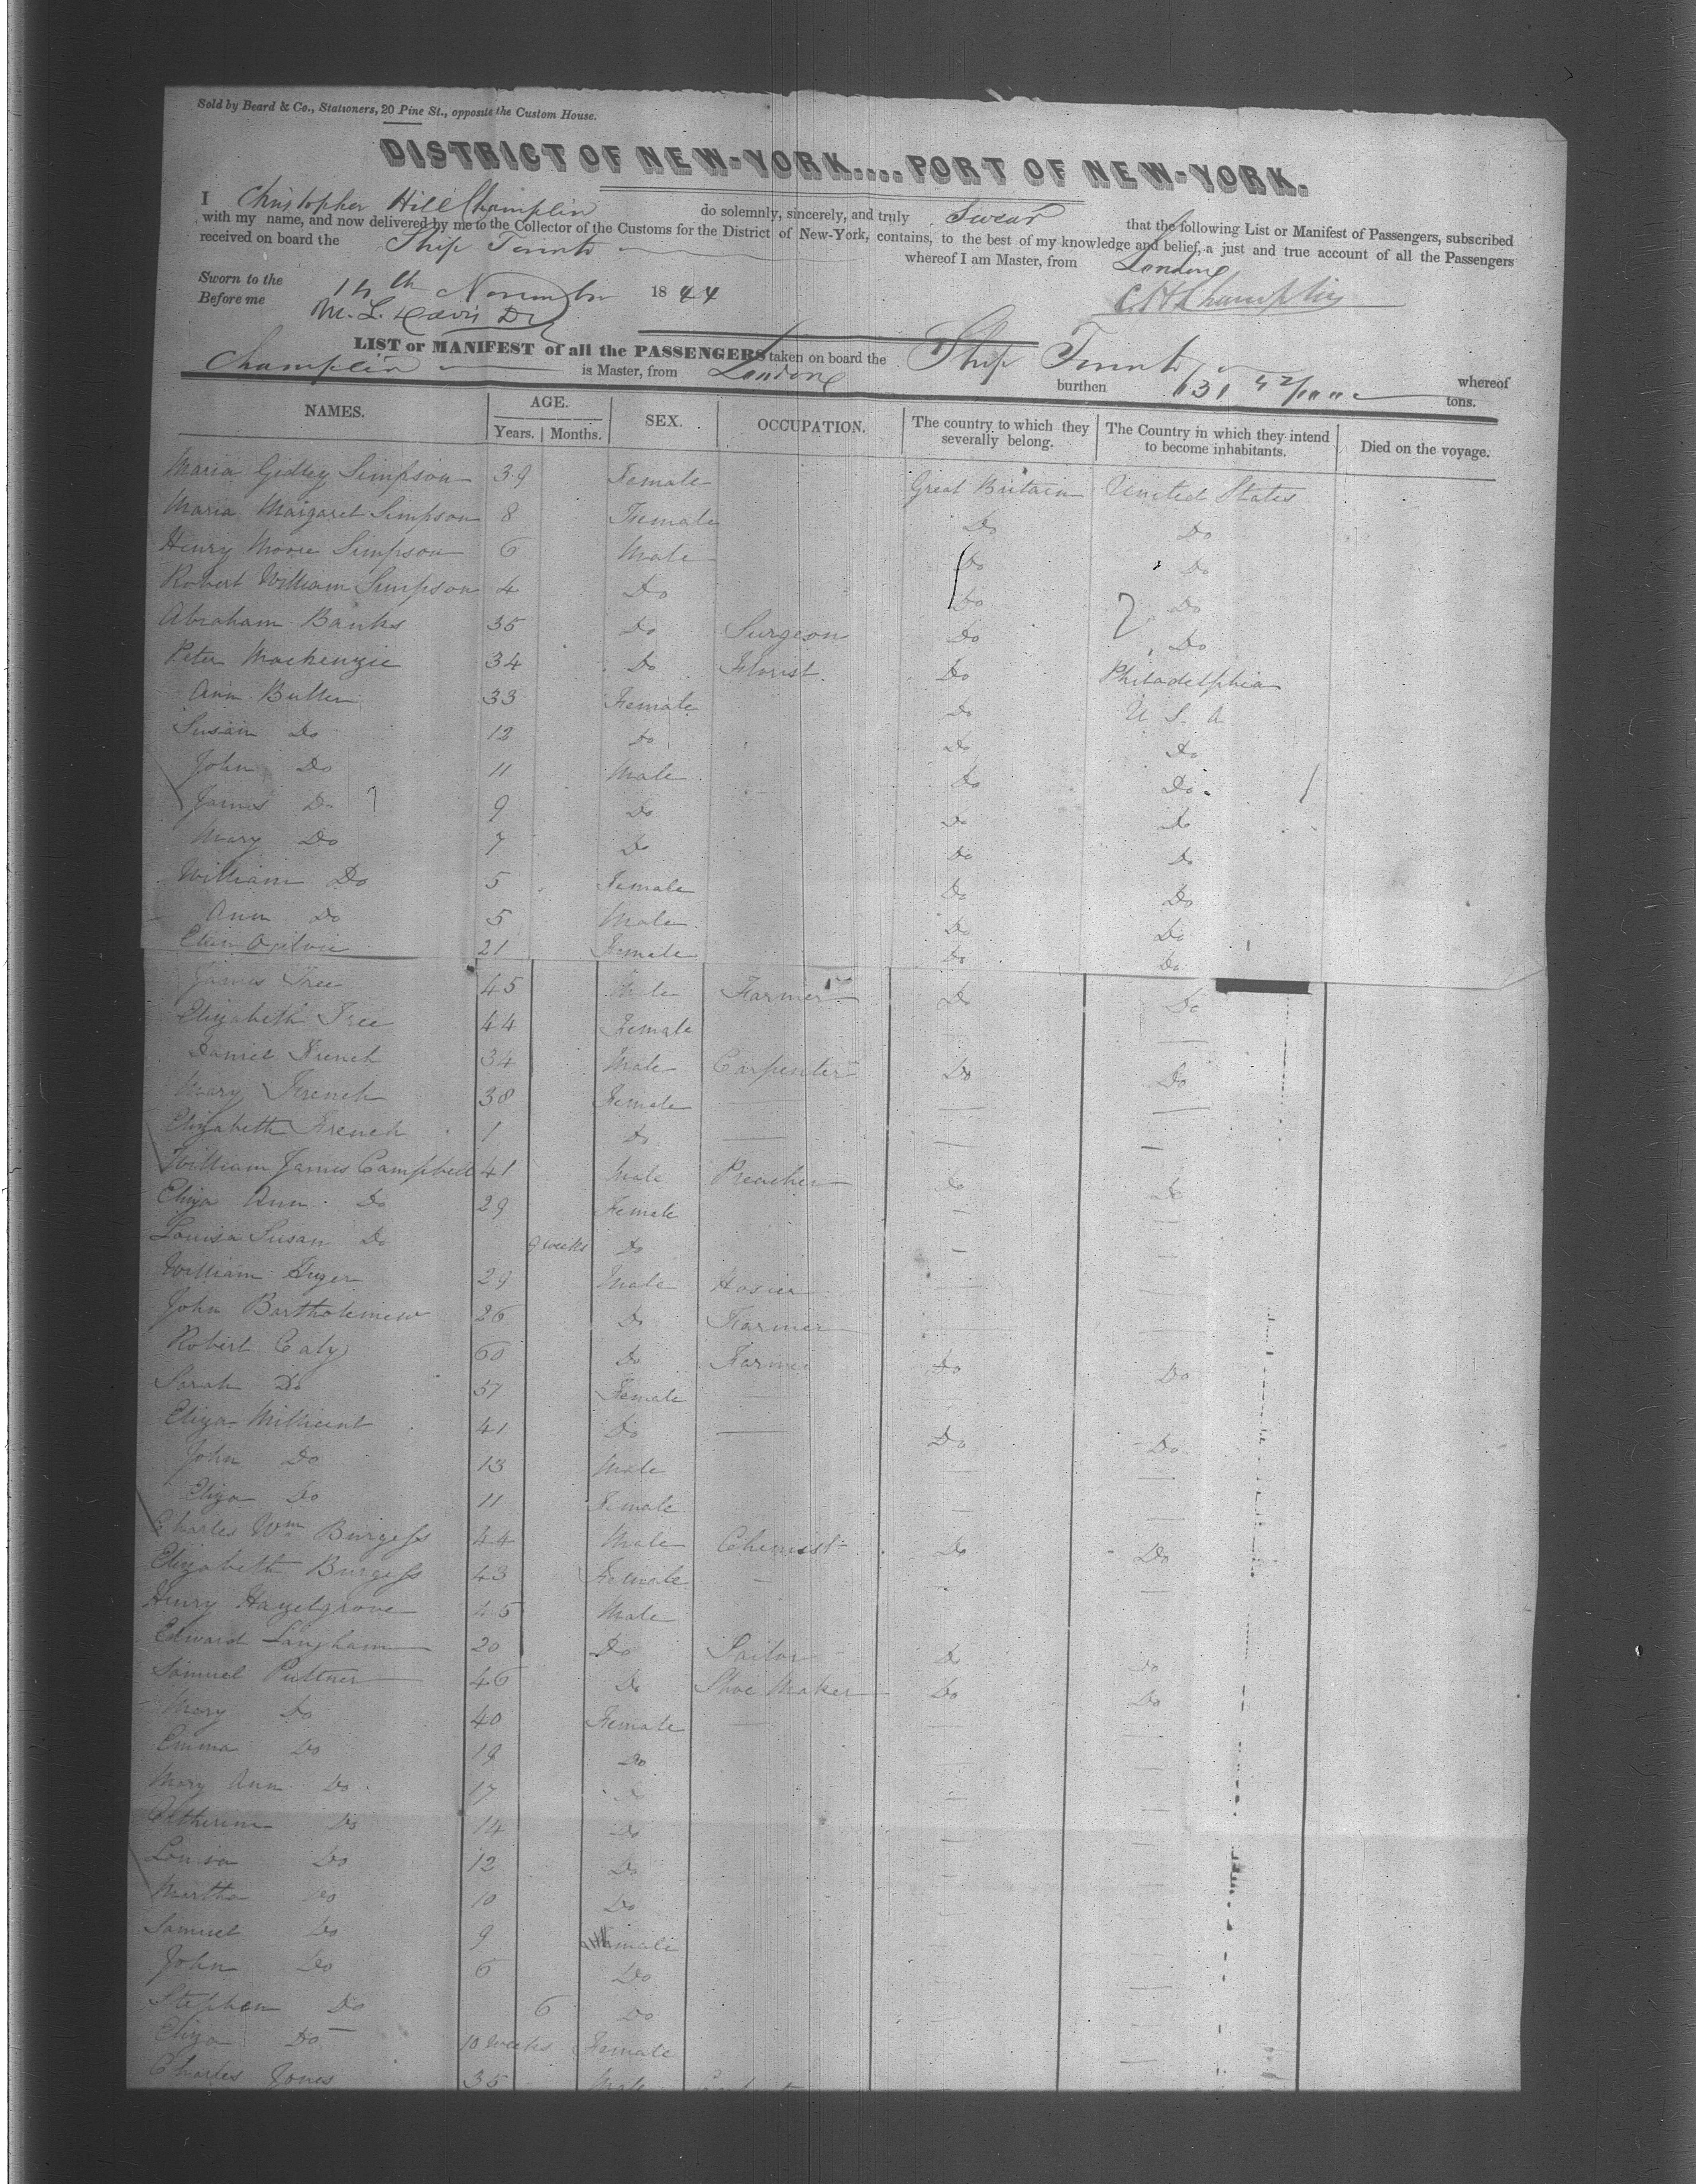 Sold by Beard & Co., Stationers, 20 Pine St., opposite the Custom House.
DISTRICT OF NEW-YORK....PORT OF NEW-YORK.
I Christopher Hill Champlin do solemnly, sincerely, and truly Swear that the following List or Manifest of Passengers, subscribed
with my name, and now delivered by me to the Collector of the Customs for the District of New-York, contains, to the best of my knowledge and belief, a just and true account of all the Passengers
received on board the Ship whereof I am Master, from London
Sworn to the November 1844 C H Champlin
Before me M. L. Davis
LIST or MANIFEST of all the PASSENGERS taken on board the Ship whereof
Champlin is Master, from London burthen tons.
NAMES. AGE. Years. Months. SEX. OCCUPATION. The country to which they severally belong. The Country in which they intend to become inhabitants. Died on the voyage.
Maria Gidley Simpson 39 Female Great Britain United States
Maria Margaret Simpson 8 Female Do Do
Henry Moore Simpson 6 Male Do Do
Robert William Simpson 4 Do Do Do
Abraham Banks 35 Do Surgeon Do Do
Peter Mackenzie 34 Do Florist Do Philadelphia
Ann Butler 33 Female Do U S A
Susan Do 12 Do Do Do
John Do 11 Male Do Do
James Do 9 Do Do Do
Mary Do 7 Do Do Do
William Do 5 Female Do Do
Ann Do 5 Male Do Do
Ellen Ogilvie 21 Female Do Do
James Tree 45 Male Farmer Do Do
Elizabeth Tree 44 Female
Daniel French 34 Male Carpenter Do Do
Mary French 38 Female
Elizabeth French 1 Do
William James Campbell 41 Male Preacher Do Do
Eliza Ann Do 29 Female
Louisa Susan Do 9 weeks Do
William 29 Male Hosier
John Bartholemew 26 Do Farmer
Robert 60 Do Farmer Do Do
Sarah Do 57 Female
Eliza Millicent 41 Do Do Do
John Do 13 Male
Eliza Do 11 Female
Charles Wm Burgess 44 Male Chemist Do Do
Elizabeth Burgess 43 Female
Henry Hazelgrove 45 Male
Edward Langham 20 Do Do Do
Samuel 46 Do Shoe Maker Do Do
Mary Do 40 Female
Emma Do 19 Do
Mary Ann Do 17 Do
Catherine Do 14 Do
Louisa Do 12 Do
Martha Do 10 Do
Samuel Do 9 male
John Do 6 Do
Stephen Do 6 Do
Eliza Do 10 weeks Female
Charles Jones 35 Male